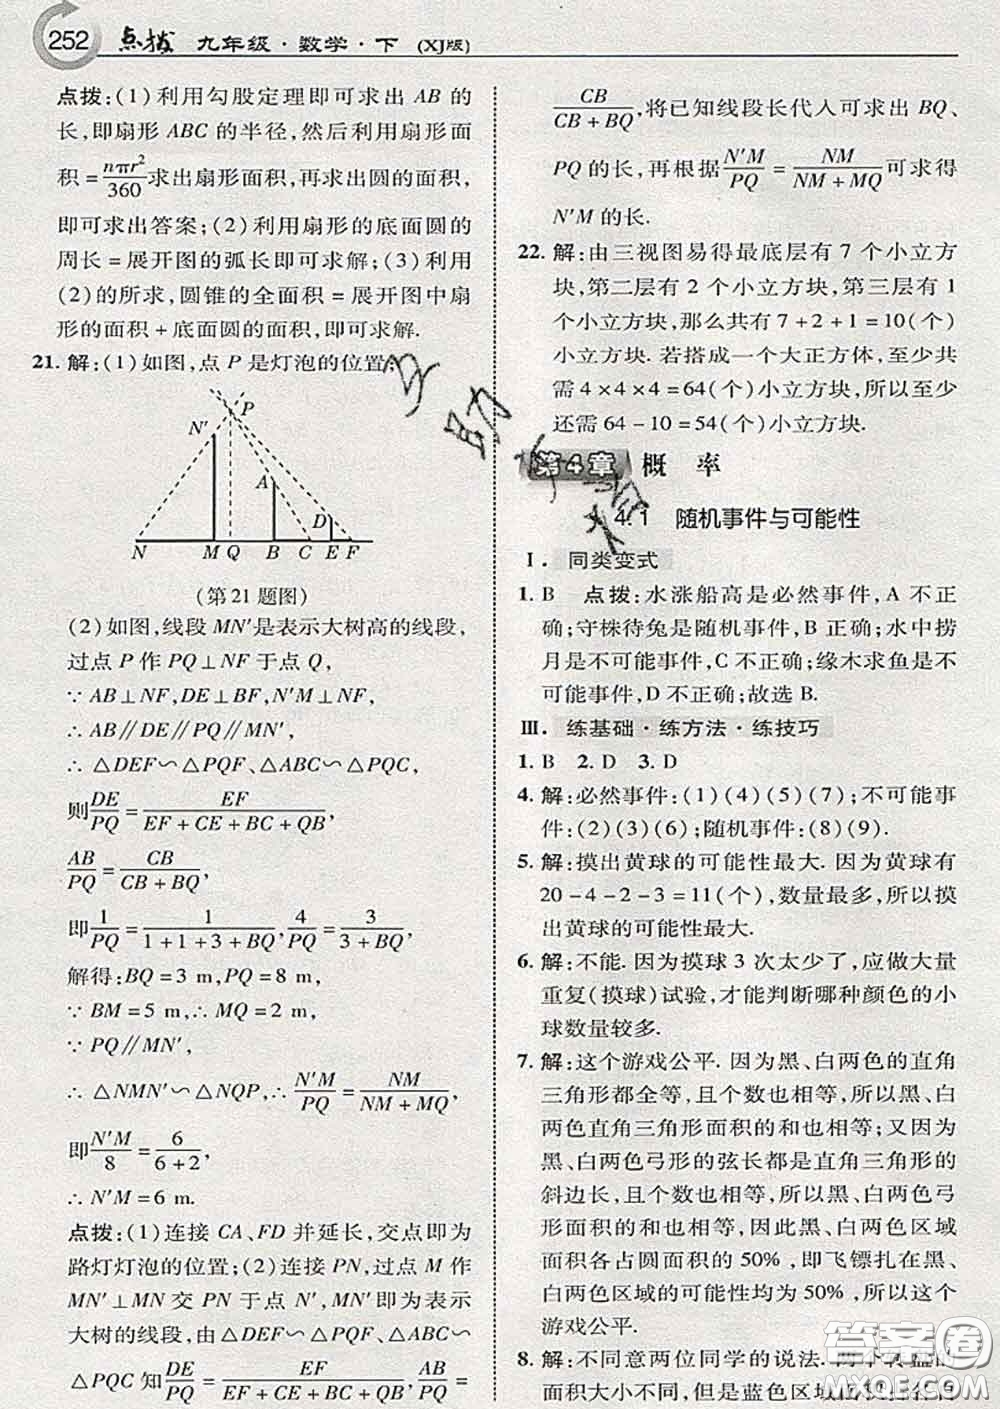 252 点拨 九年级·数学·下 (XJ版)
点拨:(1)利用勾股定理即可求出 AB 的
长,即扇形 ABC 的半径,然后利用扇形面
积=nπr²/360求出扇形面积,再求出圆的面积,
即可求出答案;(2)利用扇形的底面圆的
周长=展开图的弧长即可求解;(3)利用
(2)的所求,圆锥的全面积=展开图中扇
形的面积+底面圆的面积,即可求解.
21. 解:(1)如图,点 P 是灯泡的位置;
P
N′
A
D
N M Q B C E F
(第21题图)
(2)如图,线段 MN′是表示大树高的线段,
过点 P 作 PQ⊥NF 于点 Q,
∵ AB⊥NF,DE⊥BF,N′M⊥NF,
∴ AB∥DE∥PQ∥MN′
∴ △DEF∽△PQF,△ABC∽△PQC,
则DE/PQ=EF/(EF+CE+BC+QB),
AB/PQ=CB/(CB+BQ),
即1/PQ=1/(1+1+3+BQ),4/PQ=3/(3+BQ),
解得:BQ=3 m,PQ=8 m,
∵ BM=5 m,∴ MQ=2 m,
∵ PQ∥MN′,
∴ △NMN′∽△NQP,∴ N′M/PQ=NM/(NM+MQ),
即N′M/8=6/(6+2),
∴ N′M=6 m.
点拨:(1)连接 CA、FD 并延长,交点即为
路灯灯泡的位置;(2)连接 PN,过点 M 作
MN′⊥MN 交 PN 于点 N′,MN′即为表示
大树的线段,由△DEF∽△PQF,△ABC∽
△PQC 知DE/PQ=EF/(EF+CE+BC+BQ),AB/PQ=
CB/(CB+BQ),将已知线段长代人可求出 BQ、
PQ 的长,再根据N′M/PQ=NM/(NM+MQ)可求得
N′M 的长.
22. 解:由三视图易得最底层有 7 个小立方
块,第二层有 2 个小立方块,第三层有 1
个小立方块,那么共有 7+2+1=10(个)
小立方块. 若搭成一个大正方体,至少共
需 4×4×4=64(个)小立方块,所以至少
还需 64-10=54(个)小立方块.
第4章 概 率
4.1 随机事件与可能性
Ⅰ. 同类变式
1. B 点拨:水涨船高是必然事件,A 不正
确;守株待兔是随机事件,B 正确;水中捞
月是不可能事件,C 不正确;缘木求鱼是不
可能事件,D 不正确;故选 B.
Ⅲ. 练基础·练方法·练技巧
1. B 2. D 3. D
4. 解:必然事件:(1)(4)(5)(7);不可能事
件:(2)(3)(6);随机事件:(8)(9).
5. 解:摸出黄球的可能性最大. 因为黄球有
20-4-2-3=11(个),数量最多,所以摸
出黄球的可能性最大.
6. 解:不能. 因为摸球 3 次太少了,应做大量
重复(摸球)试验,才能判断哪种颜色的小
球数量较多.
7. 解:这个游戏公平. 因为黑、白两色的直角
三角形都全等,且个数也相等,所以黑、白
两色直角三角形面积的和也相等;又因为
黑、白两色弓形的弦长都是直角三角形的
斜边长,且个数也相等,所以黑、白两色弓
形面积的和也相等,因此黑、白两色区域
面积各占圆面积的 50%,即飞镖扎在黑、
白两色区域的可能性均为 50%,所以这个
游戏公平.
8. 解:不同意两位同学的说法. 两个转盘的
面积大小不同,但是蓝色区域
答案圈
MXQE.COM